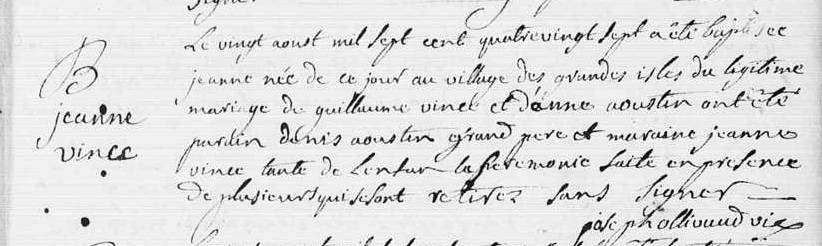 Signer
B
jeanne
vince
Le vingt aoust mil sept cent quatre vingt sept a été baptisee
jeanne née de ce jour au village des grandes isles du légitime
mariage de guillaume vince et d'anne aoustin ont été
parain denis aoustin grand pere et maraine jeanne
vince tante de Lenfant la seremonie faite en presence
de plusieurs qui se sont retirez sans Signer
joseph ollivaud vic